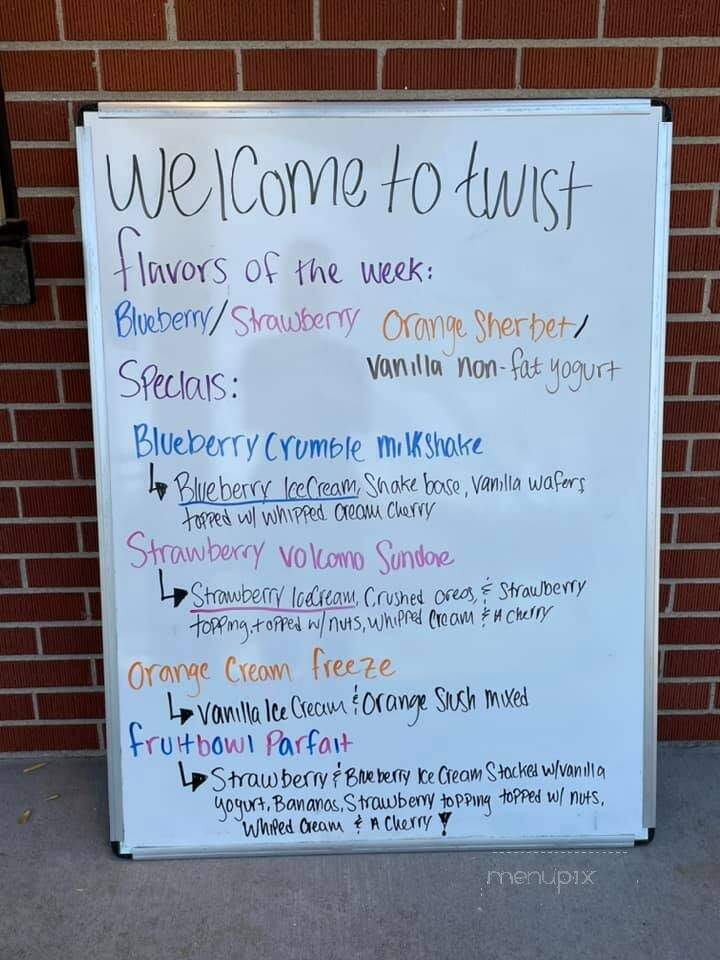 Welcome to twist
flavors of the week:
Blueberry/Strawberry Orange Sherbet/
Vanilla non-fat yogurt
Specials:
Blueberry Crumble milkshake
↳ Blueberry IceCream, Shake base, Vanilla wafers
topped w/ whipped cream cherry
Strawberry volcano Sundae
↳ Strawberry IceCream, Crushed oreos, & Strawberry
topping, topped w/ nuts, whipped cream & A cherry
Orange Cream freeze
↳ Vanilla Ice Cream & Orange Slush mixed
fruitbowl Parfait
↳ Strawberry & Blueberry Ice Cream Stacked w/vanilla
yogurt, Bananas, Strawberry topping topped w/ nuts,
Whiped Cream & A Cherry !
menupix